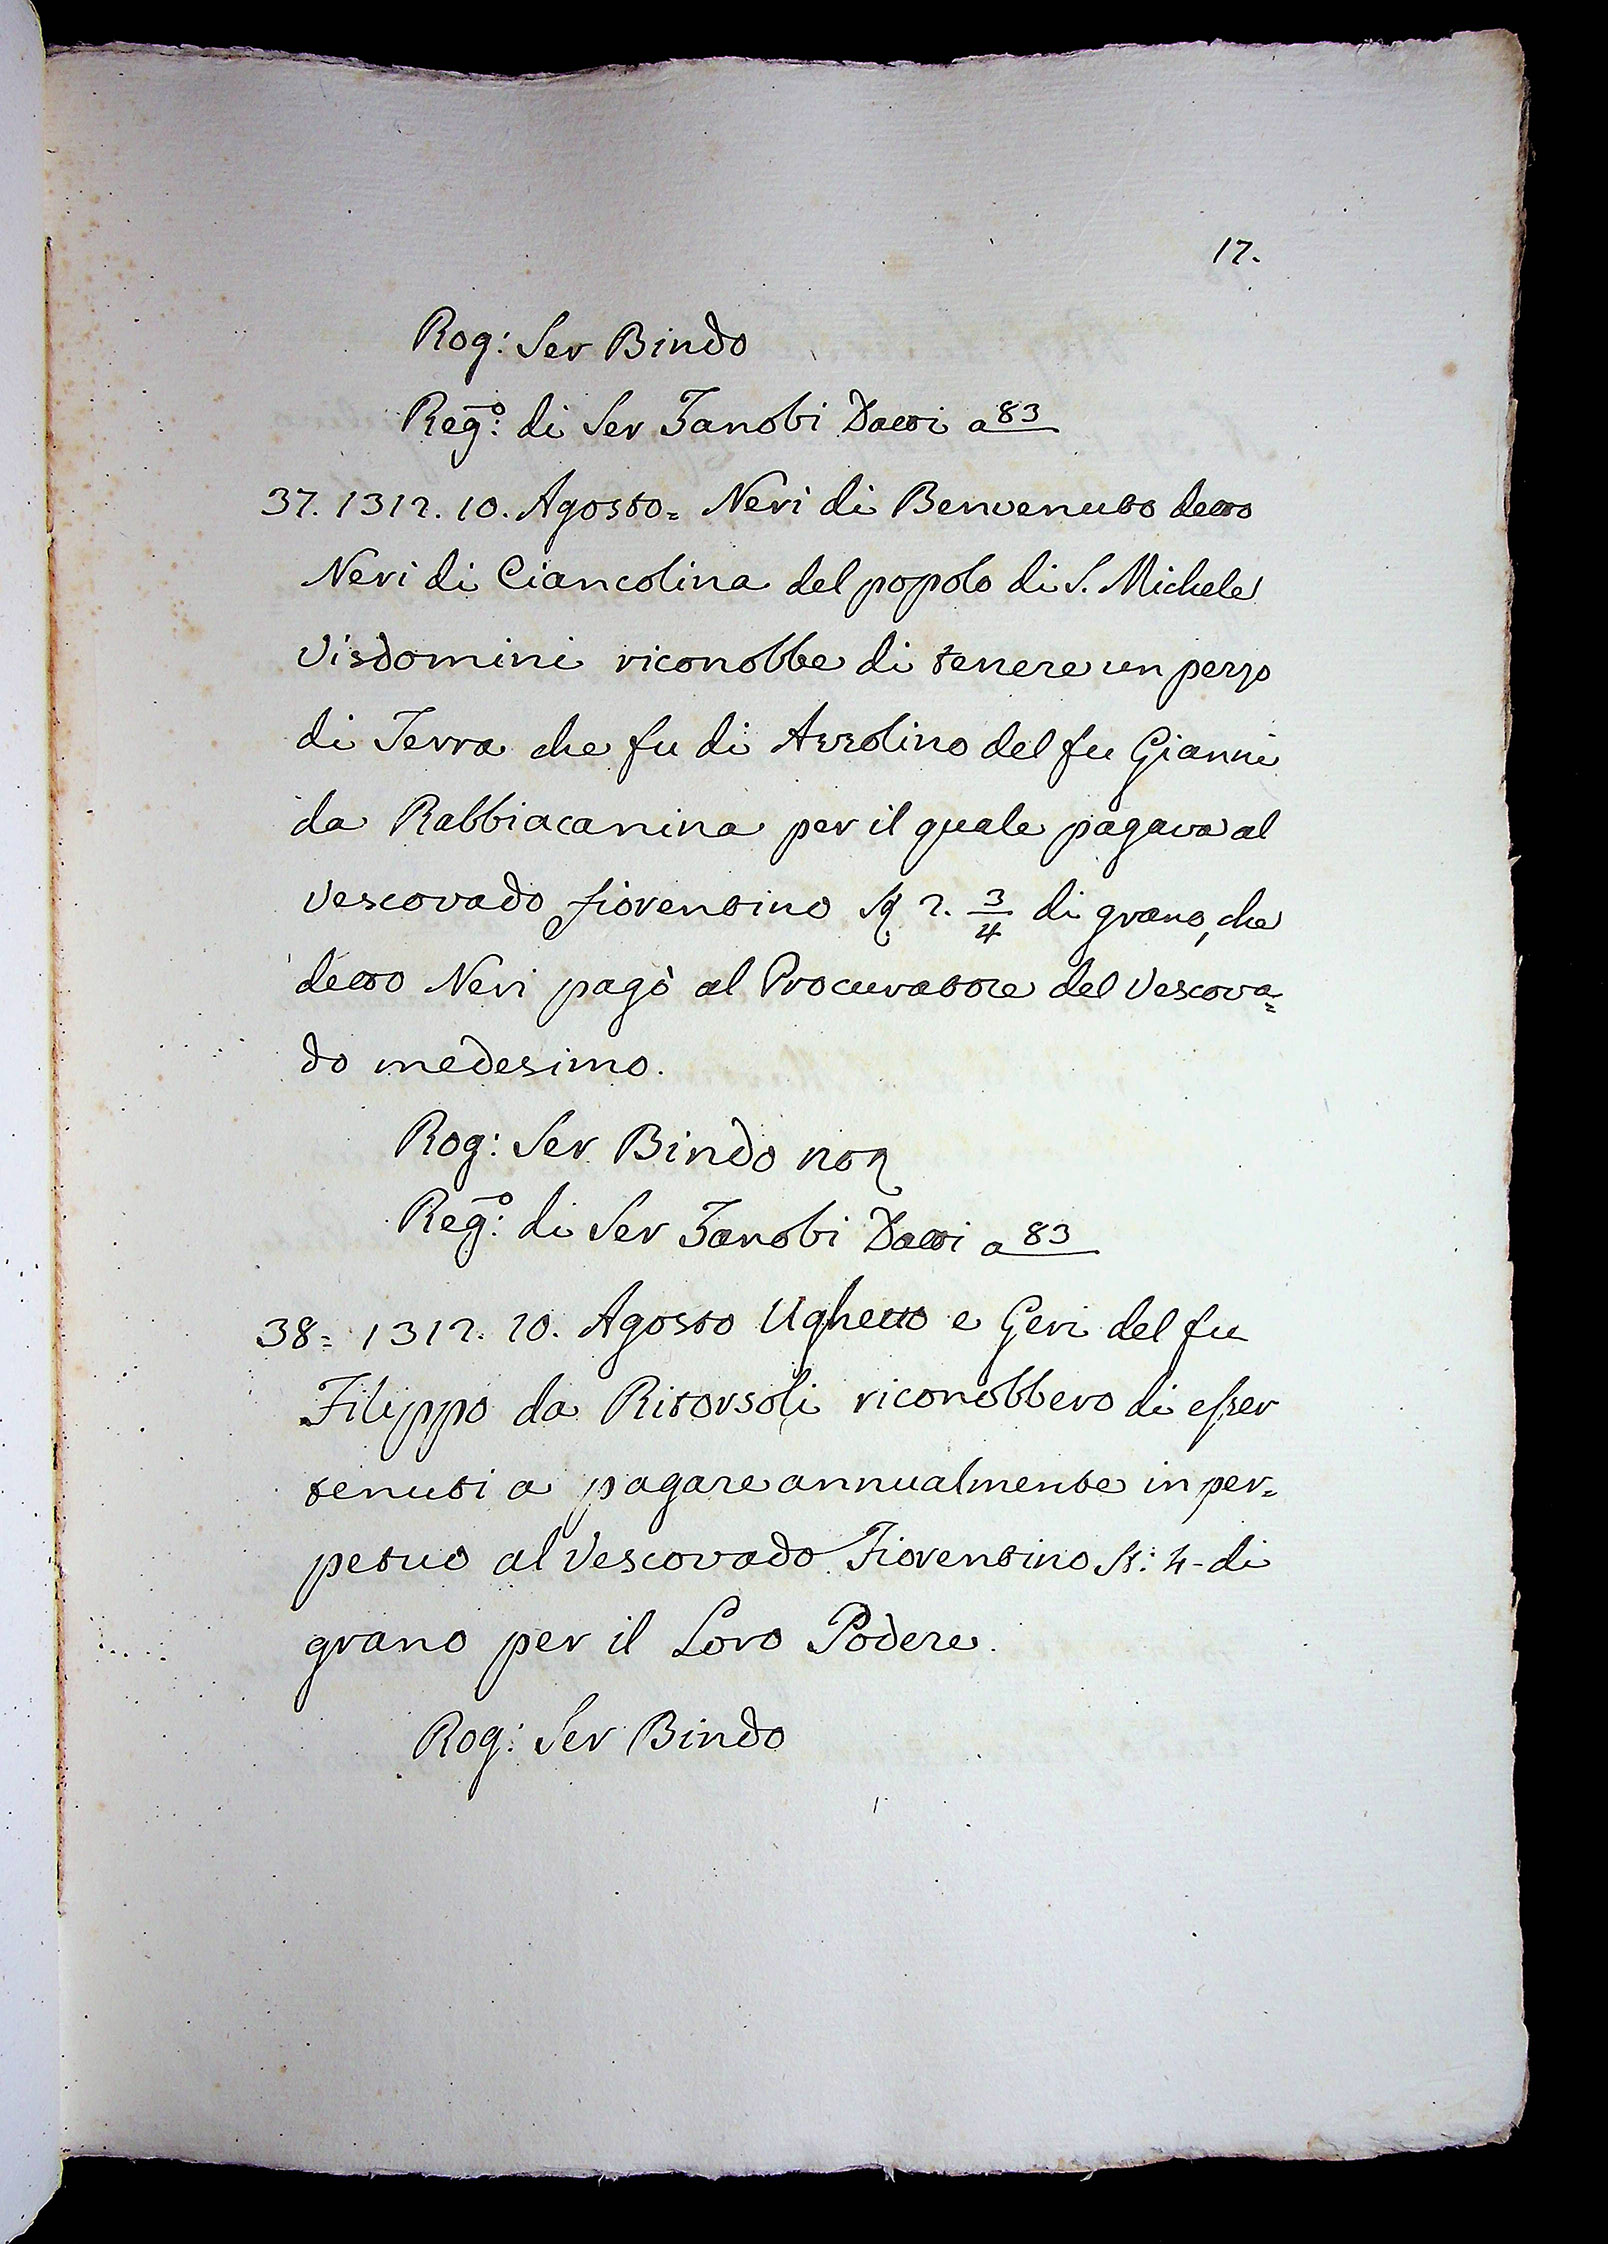 17.
Rog: Ser Bindo
Reg.º di Ser Zanobi Datti a 83
37. 1312. 10. Agosto= Neri di Benvenuto detto
Neri di Ciancolina del popolo di S. Michele
Visdomini riconobbe di tenere un pezzo
di Terra che fu di Azzolino del fu Gianni
da Rabbiacanina per il quale pagava al
Vescovado fiorentino St 2. 3/4 di grano, che
detto Neri pagò al Procuratore del Vescova=
do medesimo.
Rog: Ser Bindo not
Reg.º di Ser Zanobi Datti a 83
38= 1312. 10. Agosto Ughetto e Geri del fu
Filippo da Ritorsoli riconobbero di esser
tenuti a pagare annualmente in per=
petuo al Vescovado Fiorentino St: 4- di
grano per il Loro Podere.
Rog: Ser Bindo